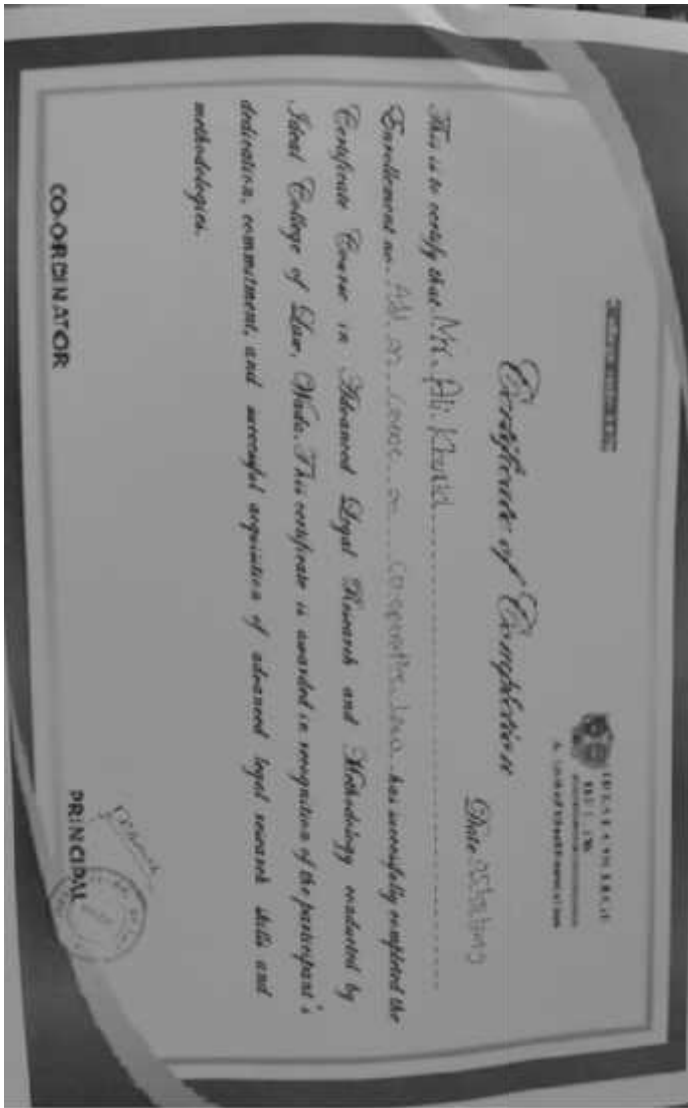 IDEAL COLLEGE
OF LAW
Certificate of Completion
Date
This is to certify that Mr. Ali Khalid
Enrollment no. Add on course on cooperative law has successfully completed the
Certificate Course in Advanced Legal Research and Methodology conducted by
Ideal College of Law, Wada. This certificate is awarded in recognition of the participant's
dedication, commitment, and successful acquisition of advanced legal research skills and
methodologies.
CO-ORDINATOR
PRINCIPAL